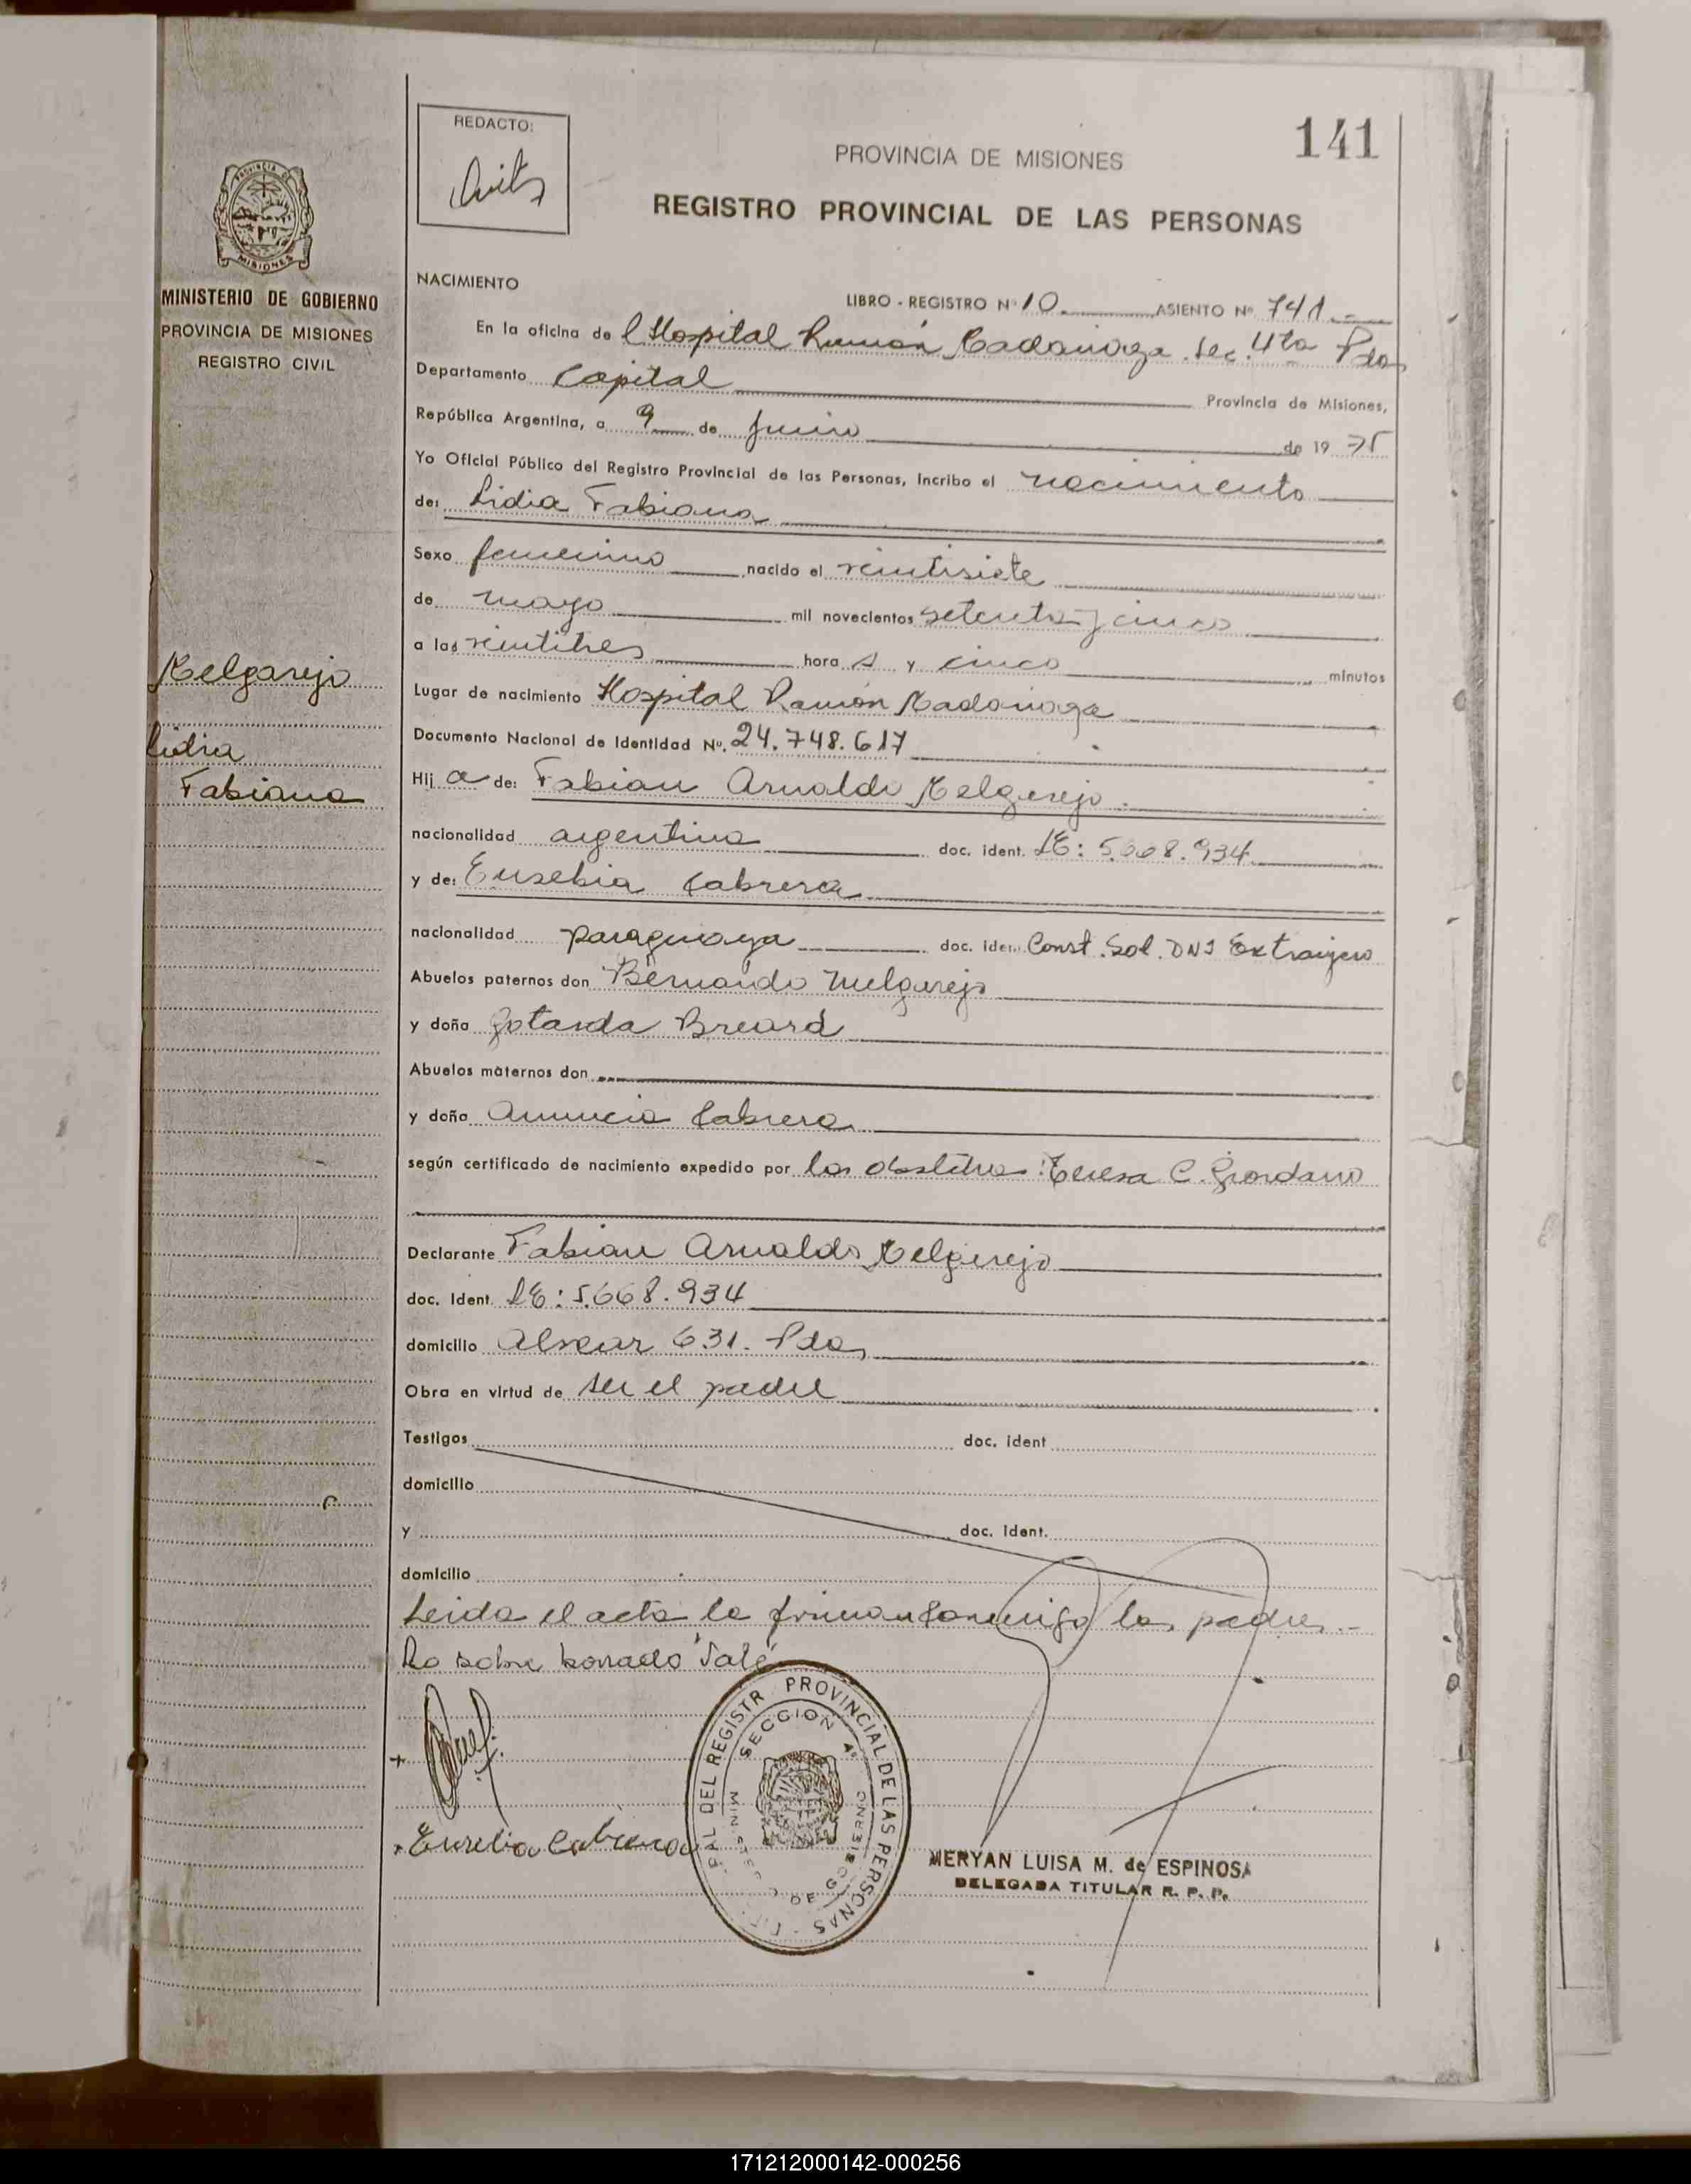 141
REDACTO:
PROVINCIA DE MISIONES
REGISTRO PROVINCIAL DE LAS PERSONAS
PROVINCIA DE
MISIONES
MINISTERIO DE GOBIERNO
PROVINCIA DE MISIONES
REGISTRO CIVIL
Melgarejo
Lidia
Fabiana
NACIMIENTO
LIBRO - REGISTRO Nº 10 ASIENTO Nº 741.-
En la oficina de l Hospital Ramón Madariaga. Sec. 4ta Pdas
Departamento Capital Provincia de Misiones,
República Argentina, a 9 de junio de 19 75
Yo Oficial Público del Registro Provincial de las Personas, incribo el nacimiento
de: Lidia Fabiana
Sexo femenino nacido el veintisiete
de mayo mil novecientos setenta y cinco
a las veintitres hora s y cinco minutos
Lugar de nacimiento Hospital Ramón Madariaga
Documento Nacional de Identidad Nº. 24.748.617
Hij a de: Fabian Arnaldo Melgarejo.
nacionalidad argentina doc. ident. LE: 5.668.934
y de: Eusebia Cabrera
nacionalidad paraguaya doc. iden. Const. Sol. DNI Extranjero
Abuelos paternos don Bernardo Melgarejo
y doña Breard
Abuelos maternos don
y doña Anuncia Cabrera
según certificado de nacimiento expedido por la obstetra: Teresa C. Giordano
Declarante Fabian Arnaldo Melgarejo
doc. Ident. LE: 5.668.934
domicilio Alvear 631. Pdas
Obra en virtud de ser el padre
Testigos doc. ident
domicilio
y doc. Ident.
domicilio
Leida el acta la firman conmigo los padres.-
Ro sobre borrado Vale
Eusebia Cabrera
PAL DEL REGISTR PROVINCIAL DE LAS PERSONAS
SECCION 4ª
DE GOBIERNO
MERYAN LUISA M. de ESPINOSA
DELEGADA TITULAR R. P. P.
171212000142-000256